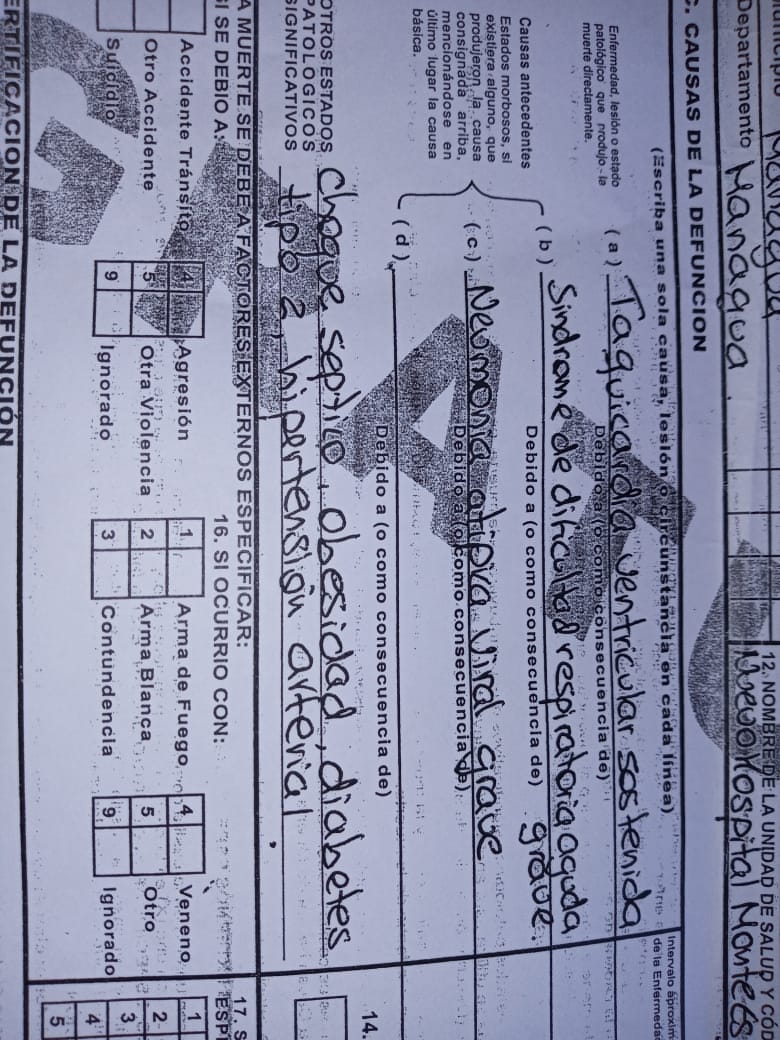 Managua
Departamento Managua
12. NOMBRE DE LA UNIDAD DE SALUD Y CÓD
Nuevo Hospital Montees
C. CAUSAS DE LA DEFUNCION
(Escriba una sola causa, lesion o circunstancia en cada línea)
Intervalo aproxim
de la Enfermeda
Enfermedad, lesión o estado
patológico que produjo la
muerte directamente.
(a) Taquicardia ventricular sostenida
Debido a (o como consecuencia de)
Causas antecedentes
Estados morbosos, si
existiera alguno, que
produjeron la causa
consignada arriba,
mencionándose en
último lugar la causa
básica.
(b) Sindrome de dificultad respiratoria aguda
grave.
Debido a (o como consecuencia de)
(c) Neumonia atipica viral grave
Debido a (o como consecuencia de)
(d)
Debido a (o como consecuencia de)
OTROS ESTADOS
PATOLOGICOS
SIGNIFICATIVOS
Choque septico, obesidad, diabetes
tipo 2, hipertensión arterial
14.
A MUERTE SE DEBE A FACTORES EXTERNOS ESPECIFICAR:
SI SE DEBIO A:
16. SI OCURRIO CON:
17. S
ESPI
Accidente Tránsito 4 Agresión 1 Arma de Fuego 4 Veneno 1
Otro Accidente 5 Otra Violencia 2 Arma Blanca 5 Otro 2
Suicidio 9 Ignorado 3 Contundencia 9 Ignorado 3
4
5
ERTIFICACION DE LA DEFUNCIÓN